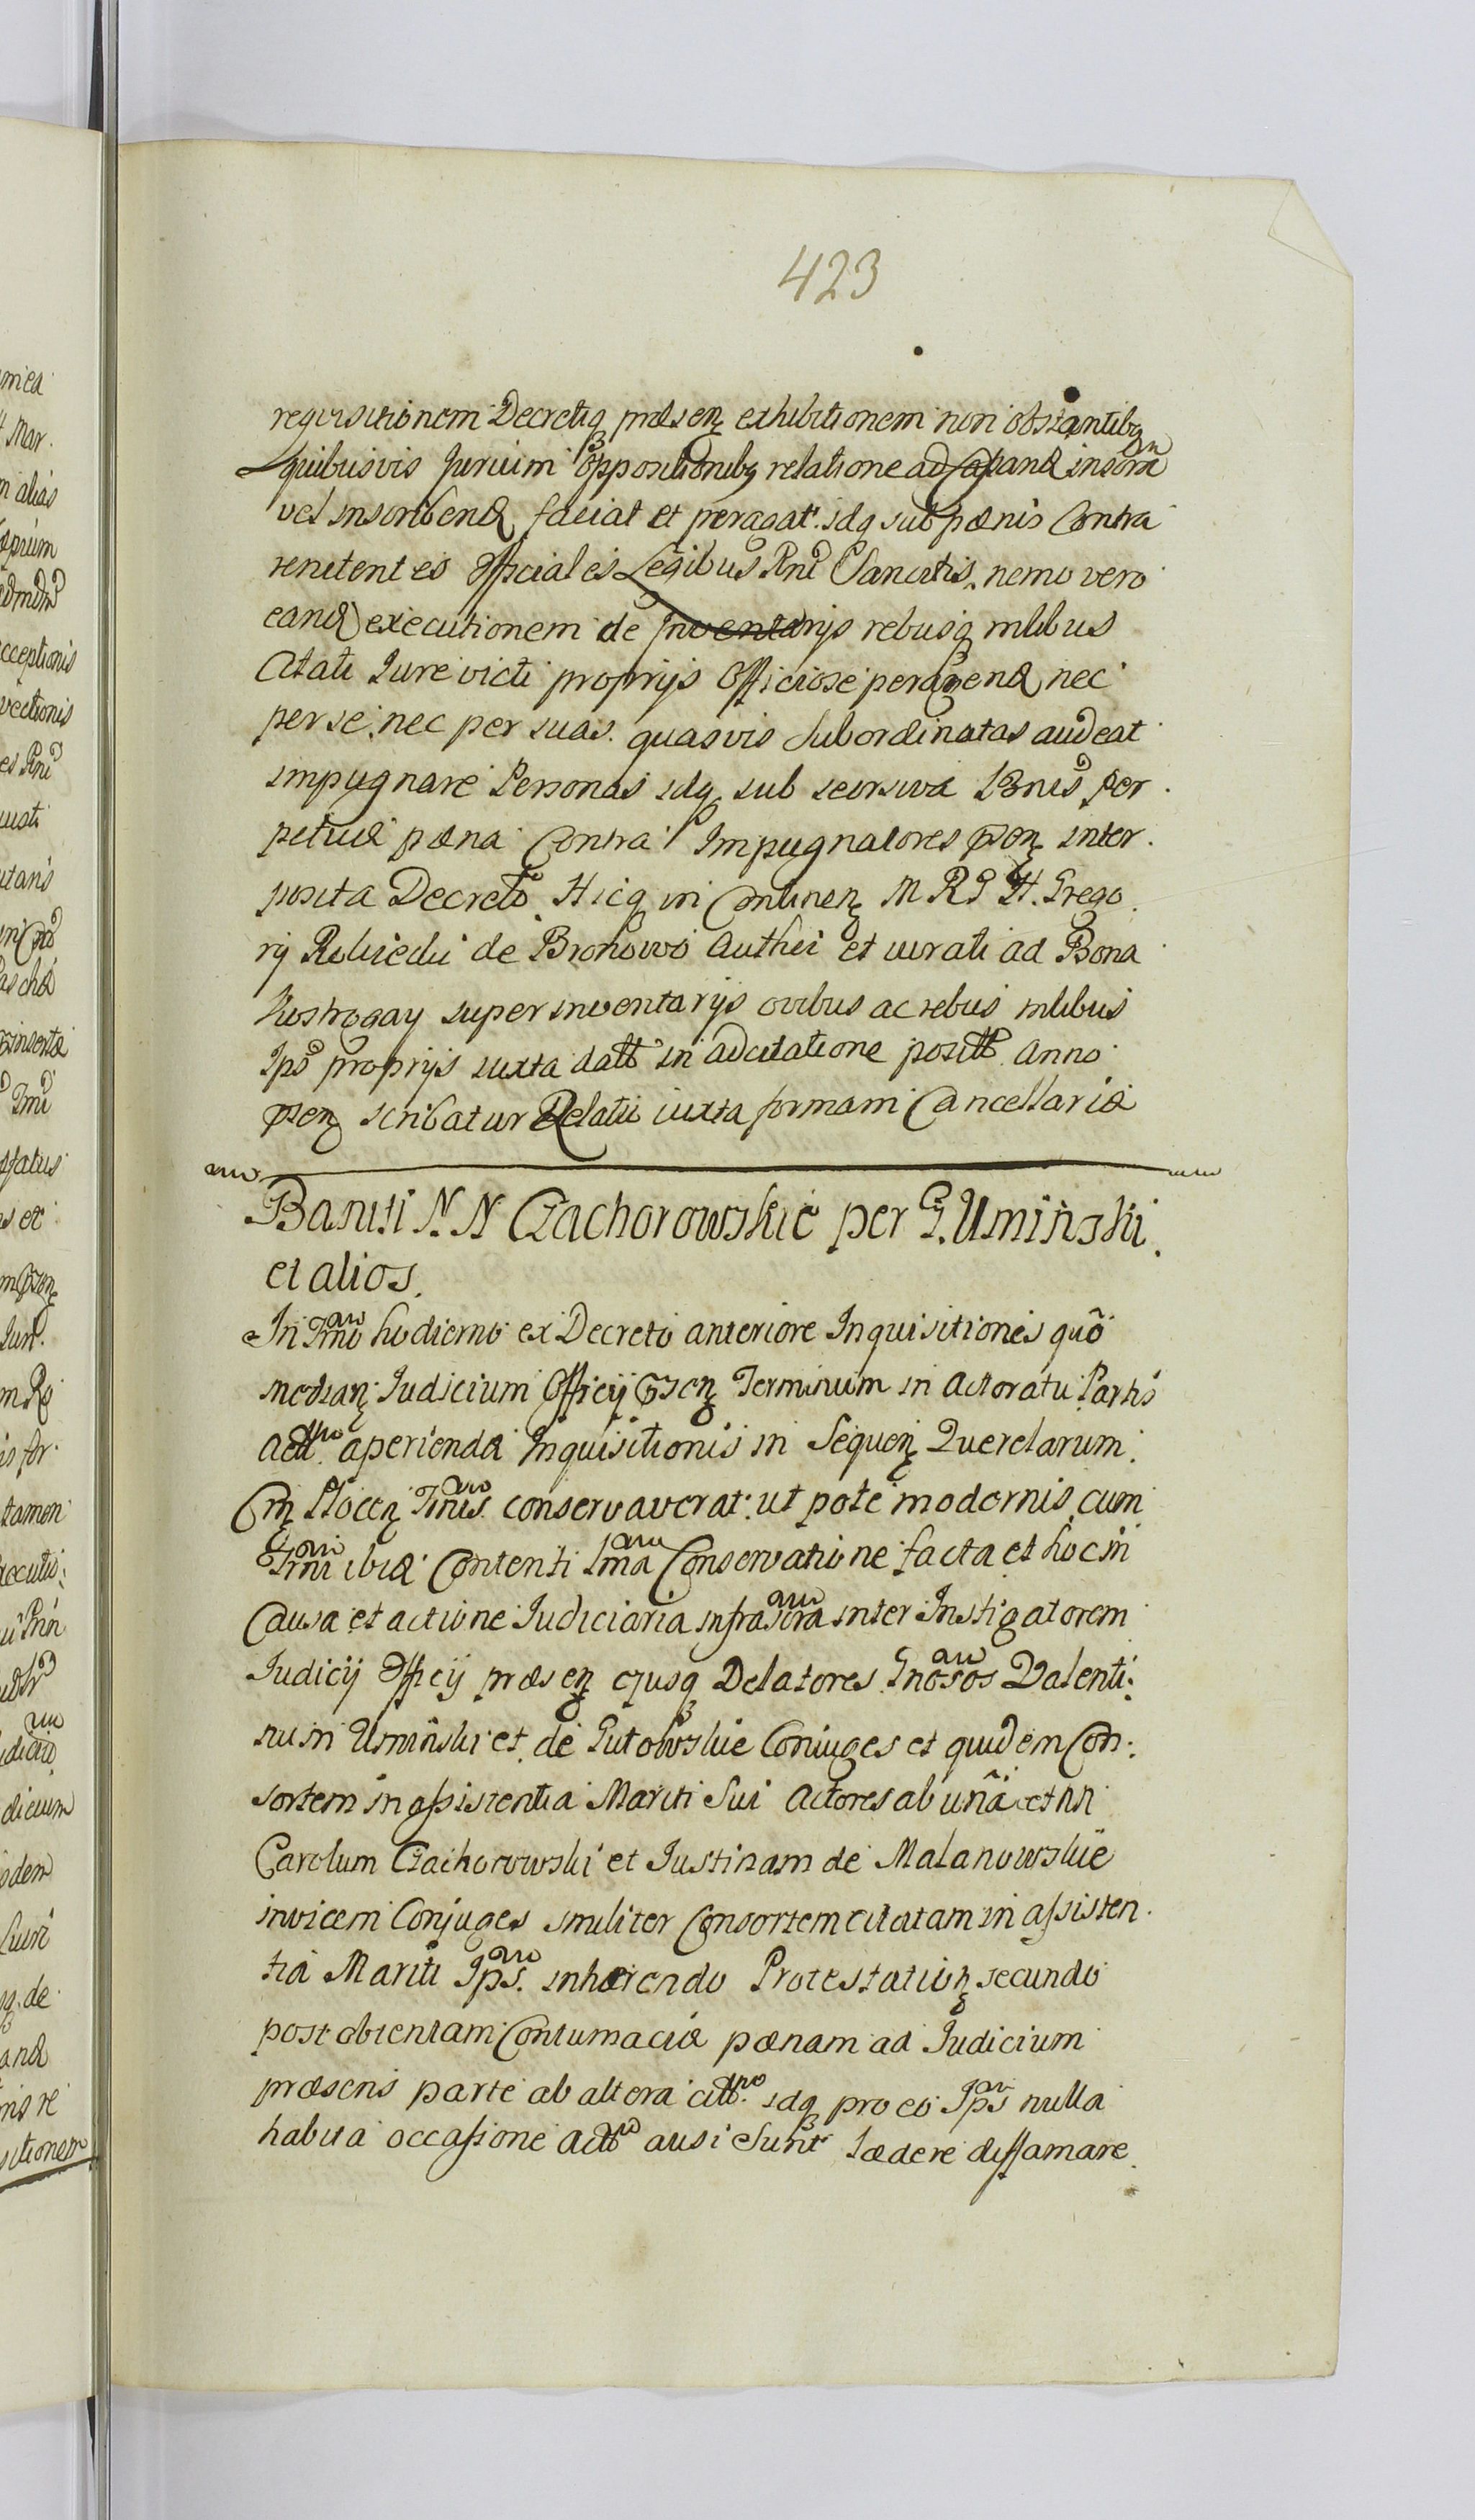 423
requisitionem Decretiq præsenz exhibitionem non obstantibq
quibusvis Jurium oppositionibq relatione ad
vel inscribend faciat et peragat. idq sub pænis Contra
renitentes Officiales Legibus Rni Sancitis. nemo vero
eand executionem de Inventarijs rebusq mlibus
Citati Jure victi proprijs Officiose peragend nec
per se. nec per suas. quasvis Subordinatas audeat
impugnare Personas idq sub seorsiva Bnis per
petuæ pæna Contra Impugnatores interposita
posita Decreto. Hicq in Continenz M R G H. Grego
rij de Bronowo Authei et iurati ad Bona
Kostrogay super inventarijs ovibus ac rebus mlibus
Ips proprijs iuxta datt in adcitatione positt. Anno
psenz scribatur Relatii iuxta formam Cancellariæ
Baniti N. N Czachorowskie per G. Uminski
et alios.
In Tmno hodierno ex Decreto anteriore Inquisitiones quô
medianz Judicium Officij psenz Terminum in Actoratu Partis
Act. aperiendæ Inquisitionis in Sequenz Querelarum.
Cmz Plocenz Tmis. conservaverat. ut pote modernis cum
Tmi ibid Contenti Tma Conservatione facta et hoc in
Causa et actione Judiciaria infrascra inter Instigatorem
Judicij Officij præsenz ejusq Delatores Gnosos Valenti:
num Uminski et de Gutowskie Coniuges et quidem Con:
sortem in assistentia Mariti Sui Actores ab unâ et NN
Carolum Czachorowski et Justinam de Malanowskie
invicem Conjuges similiter Consortem citatam in assisten.
tia Mariti Ips. inhærendo Protestationz secundo
post obtentam Contumaciæ pænam ad Judicium
præsens parte ab altera citt. idq pro eo Ipsi nulla
habita occasione Act ausi Sunt lædere diffamare